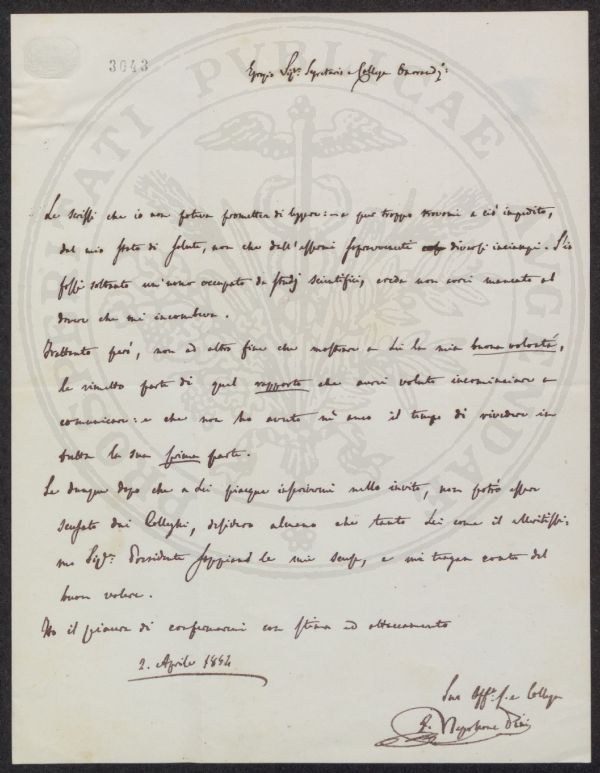 3043
PROSPERITATI PUBLICAE AUGENDAE
Egregio Sigr. Segretario e Collega
Le scrissi che io non poteva promettere di leggere: e pur troppo trovomi a ciò impedito,
dal mio stato di salute, non che dall' sopravvenuti diversi inciampi. S'io
fossi soltanto un' uomo occupato da studj scientifici, creda non avrei mancato al
dovere che mi incombeva.
Frattanto però, non ad altro fine che mostrare a Lei la mia buona volontà,
le rimetto parte di quel rapporto che avrei voluto incominciare a
comunicare: e che non ho avuto nè anco il tempo di rivedere in
tutta la sua prima parte.
Se dunque dopo che a Lei piacque inscrivermi nello invito, non potrò esser
scusato dai Colleghi, desidero almeno che tanto Lei come il Meritissi-
mo Sigr. Presidente le mie scuse, e mi tengan conto del
buon volere.
Ho il piacere di confermarmi con stima ed attaccamento
2. Aprile 1854
Suo Affo. S. e Collega
Napoleone Pini